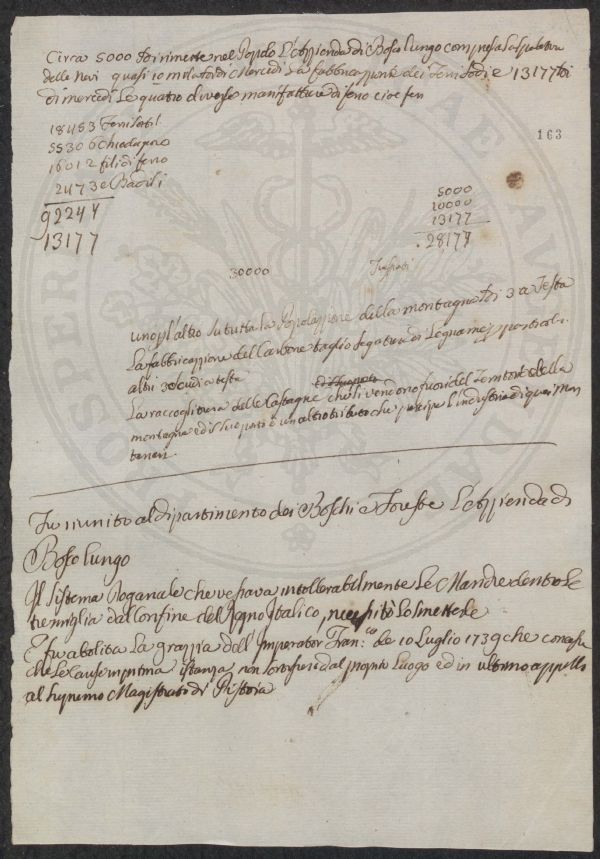 Circa 5000 ₶ rimeste nel Popolo L'Azienda di Bosco Lungo compresa la
delle Navi quasi 10 mila di Mercedi La fabbricazione dei Ferri sodi e 13177
di mercedi Le quatro diverse manifatture di ferro cioe
163
18453 Ferri sodi
55306 Chiodagione
16012 fili di ferro
2473 e Badili
92244
13177
5000
10000
13177
28177
30000
uno p l'altro su tutta la Popolazione della montagna 3 a Testa
La fabbricazione del Carbone taglio segatura di Legname
altri 3 scudi a testa
La raccoglitura delle Castagne che si vendono fuori del Territorio della
montagna ed è un altro tributo che l'industria di quei Mon
tanari.
Fu riunito al dipartimento dei Boschi e Foreste L'Azienda di
Bosco Lungo
Il Sistema Doganale che vessava intollerabilmente Le Mandre dentro le
tre miglia dal Confine del Regno Italico,
E fu abolita La grazia dell'Imperator Fran.co de 10 Luglio 1739 che
che Le Cause in prima istanza non sortissero dal proprio Luogo ed in ultimo appello
al supremo Magistrato di Pistoia